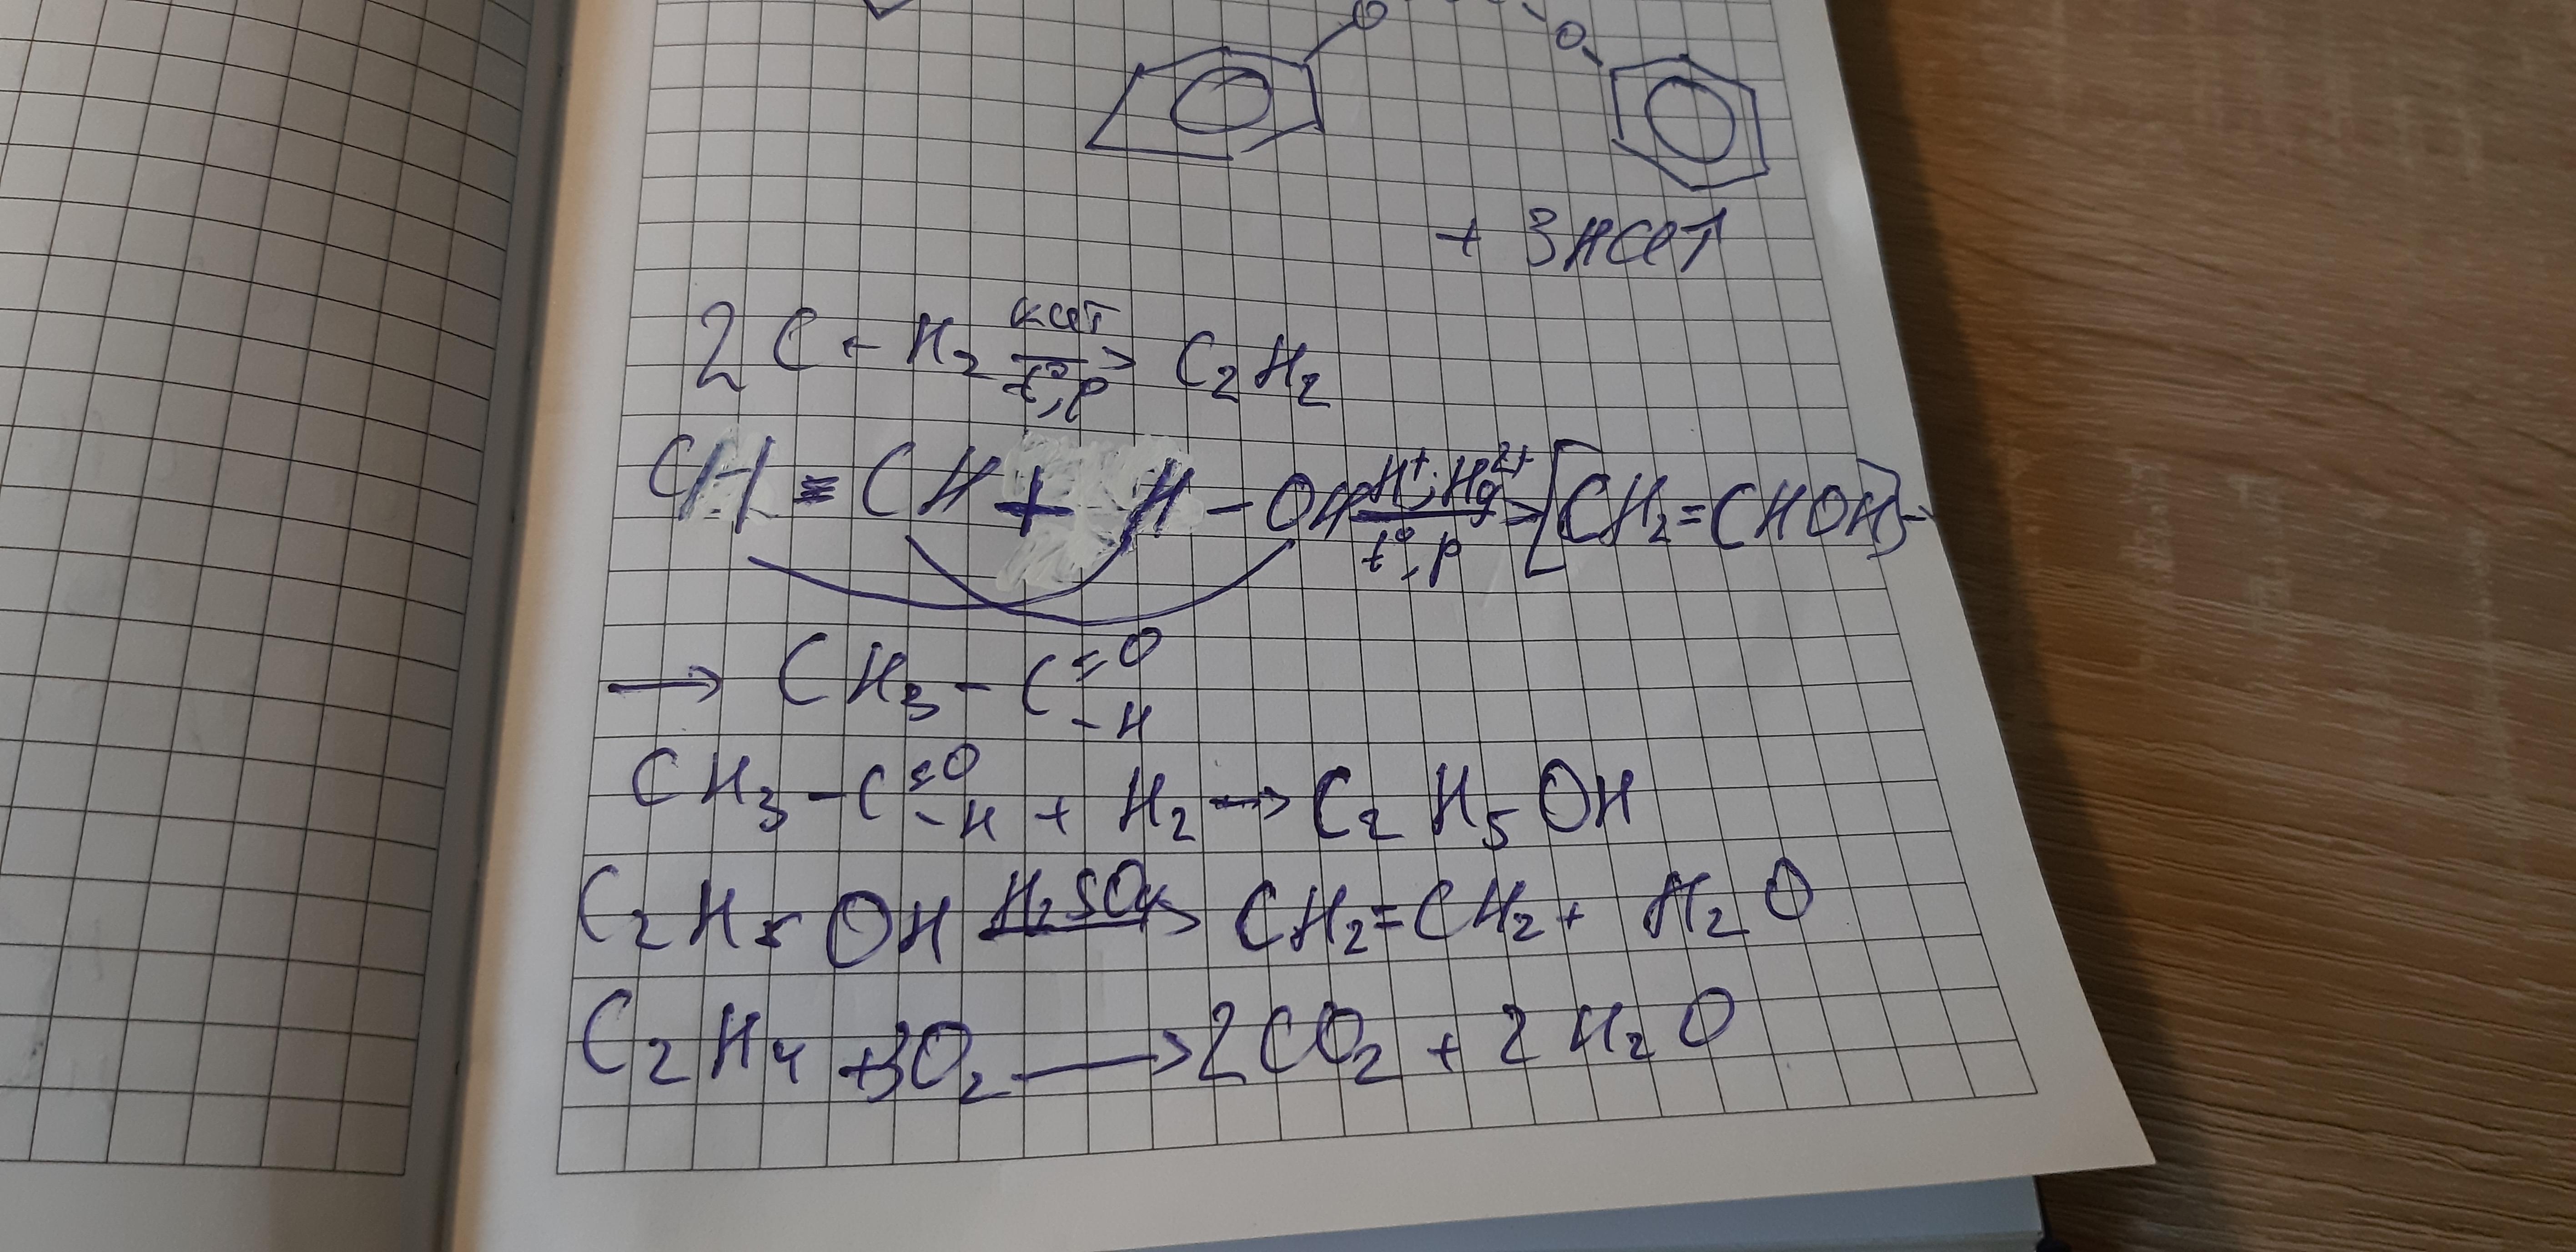 O
O
+ 3HCl↑
2C + H₂ кат t°, p → C₂H₂
CH ≡ CH + H – OH H⁺; Hg²⁺ t°, p → [CH₂=CHOH] →
→ CH₃ – C =O –H
CH₃ – C =O –H + H₂ → C₂H₅OH
C₂H₅OH H₂SO₄ → CH₂=CH₂ + H₂O
C₂H₄ + 3O₂ → 2CO₂ + 2H₂O